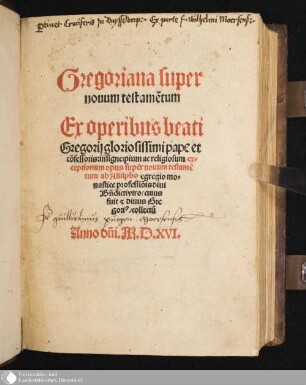 Ptinet Cruciferis in Dusseldorp. Ex parte f. Wilhelmi Moersensis
Gregoriana super
nouum testamētum
Ex operibus beati
Gregorij gloriosissimi pape et
cōfessoris: insigne pium ac religiosum ex
ceptionum opus super nouum testamē
tum ab Alulpho egregio mo
nastice professiōis diui
Bn̄dicti viro: cuius
fuit & diuus Gre
gori⁹ / collectū
fr guilhelmus
Anno dn̄i. M.D.XVI.
Universitäts- und
Landesbibliothek Düsseldorf